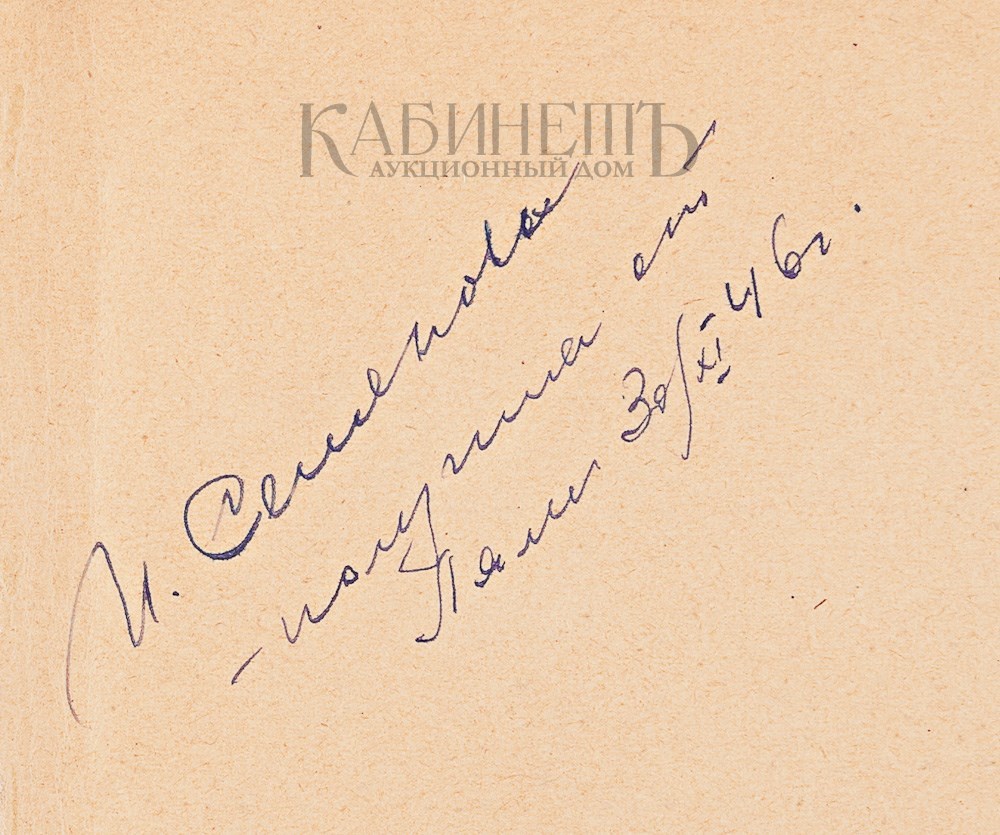 КАБИНЕТЪ
АУКЦИОННЫЙ ДОМ
И. Семенова
- получила от
Ляли 30/XI 46г.